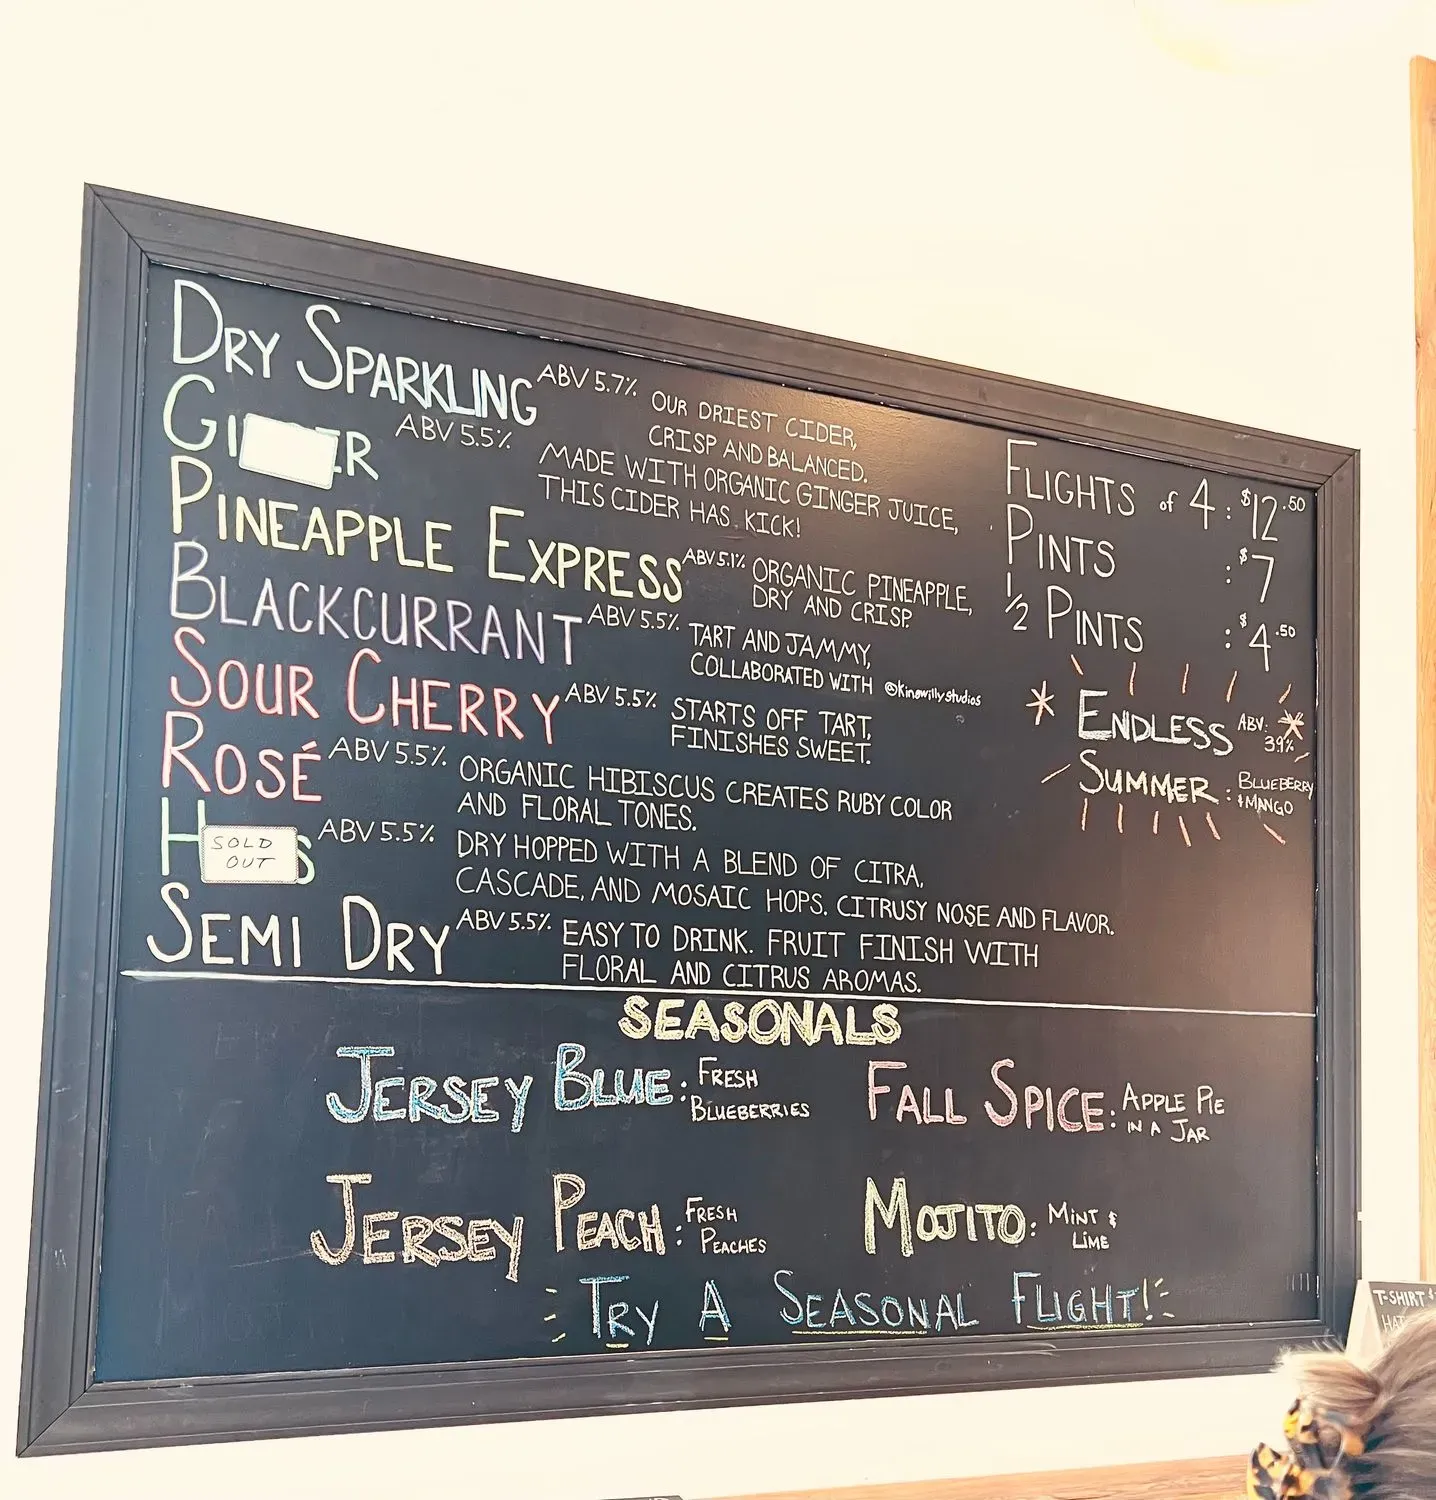 DRY SPARKLING ABV 5.7% OUR DRIEST CIDER,
CRISP AND BALANCED.
GINGER ABV 5.5% MADE WITH ORGANIC GINGER JUICE,
THIS CIDER HAS KICK!
PINEAPPLE EXPRESS ABV 5.1% ORGANIC PINEAPPLE,
DRY AND CRISP.
BLACKCURRANT ABV 5.5% TART AND JAMMY,
COLLABORATED WITH @kingwillystudios
SOUR CHERRY ABV 5.5% STARTS OFF TART,
FINISHES SWEET.
ROSÉ ABV 5.5% ORGANIC HIBISCUS CREATES RUBY COLOR
AND FLORAL TONES.
H S ABV 5.5% DRY HOPPED WITH A BLEND OF CITRA,
SOLD
OUT
CASCADE, AND MOSAIC HOPS. CITRUSY NOSE AND FLAVOR.
SEMI DRY ABV 5.5% EASY TO DRINK. FRUIT FINISH WITH
FLORAL AND CITRUS AROMAS.
FLIGHTS of 4 : $12.50
PINTS : $7
1/2 PINTS : $4.50
* ENDLESS ABV: *
39%
SUMMER : BLUEBERRY
& MANGO
SEASONALS
JERSEY BLUE : FRESH
BLUEBERRIES
FALL SPICE : APPLE PIE
IN A JAR
JERSEY PEACH : FRESH
PEACHES
MOJITO : MINT &
LIME
TRY A SEASONAL FLIGHT!
T-SHIRT $
HAT